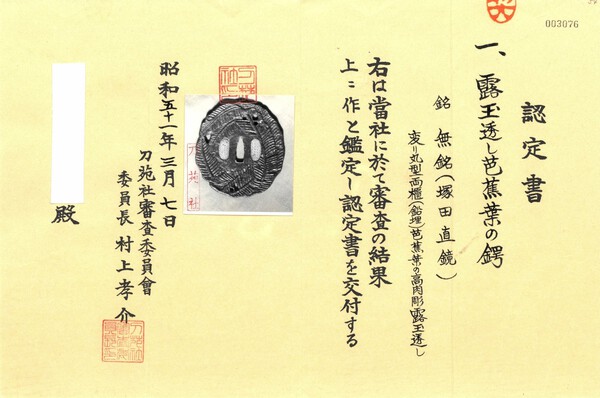 003076
認定書
一、露玉透し芭蕉葉の鍔
銘 無銘(塚田直鏡)
変り丸型両櫃(鉛埋)芭蕉葉の高肉彫露玉透し
右は當社に於て審査の結果
上ニ作と鑑定し認定書を交付する
刀苑社
昭和五十一年三月七日
刀苑社審査委員會
委員長 村上孝介
殿